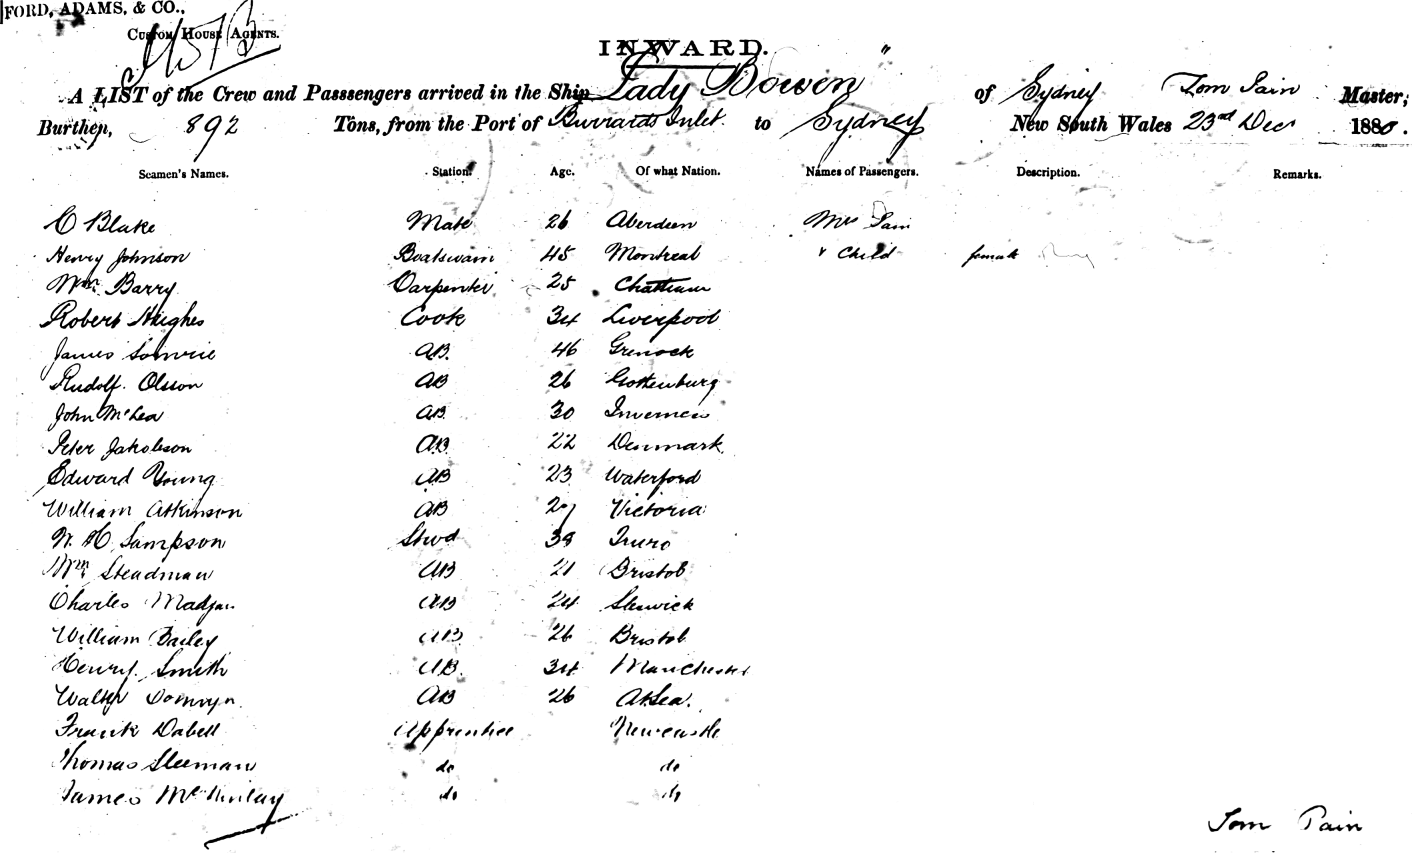 FORD, ADAMS, & CO.,
CUSTOM HOUSE AGENTS.
INWARD.
A LIST of the Crew and Passsengers arrived in the Ship Lady Bowen of Sydney Tom Pain Master,
Burthen, 892 Tons, from the Port of Burrards Inlet to Sydney New South Wales 23rd Dec 1880.
Seamen's Names. Station. Age. Of what Nation. Names of Passengers. Description. Remarks.
C Blake Mate 26 Aberdeen Mrs Pain
Henry Johnson Boatswain 45 Montreal & Child female
Wm Barry Carpenter 25 Chatham
Robert Hughes Cook 34 Liverpool
James AB. 46 Grenock
Rudolf Olsson AB 26 Gottenburg
John McLea AB 30 Inverness
Peter Jakobson AB 22 Denmark
Edward Young AB 23 Waterford
William Atkinson AB Victoria
W. H. Sampson Stwd 38 Truro
Wm Steadman AB 21 Bristol
Charles AB 24 Sleswick
William Bailey AB 26 Bristol
Henry Smith AB. 34 Manchester
Walter AB 26 At Sea.
Frank Dabell Apprentice Newcastle
Thomas Sleeman do do
James McKinlay do do
Tom Pain